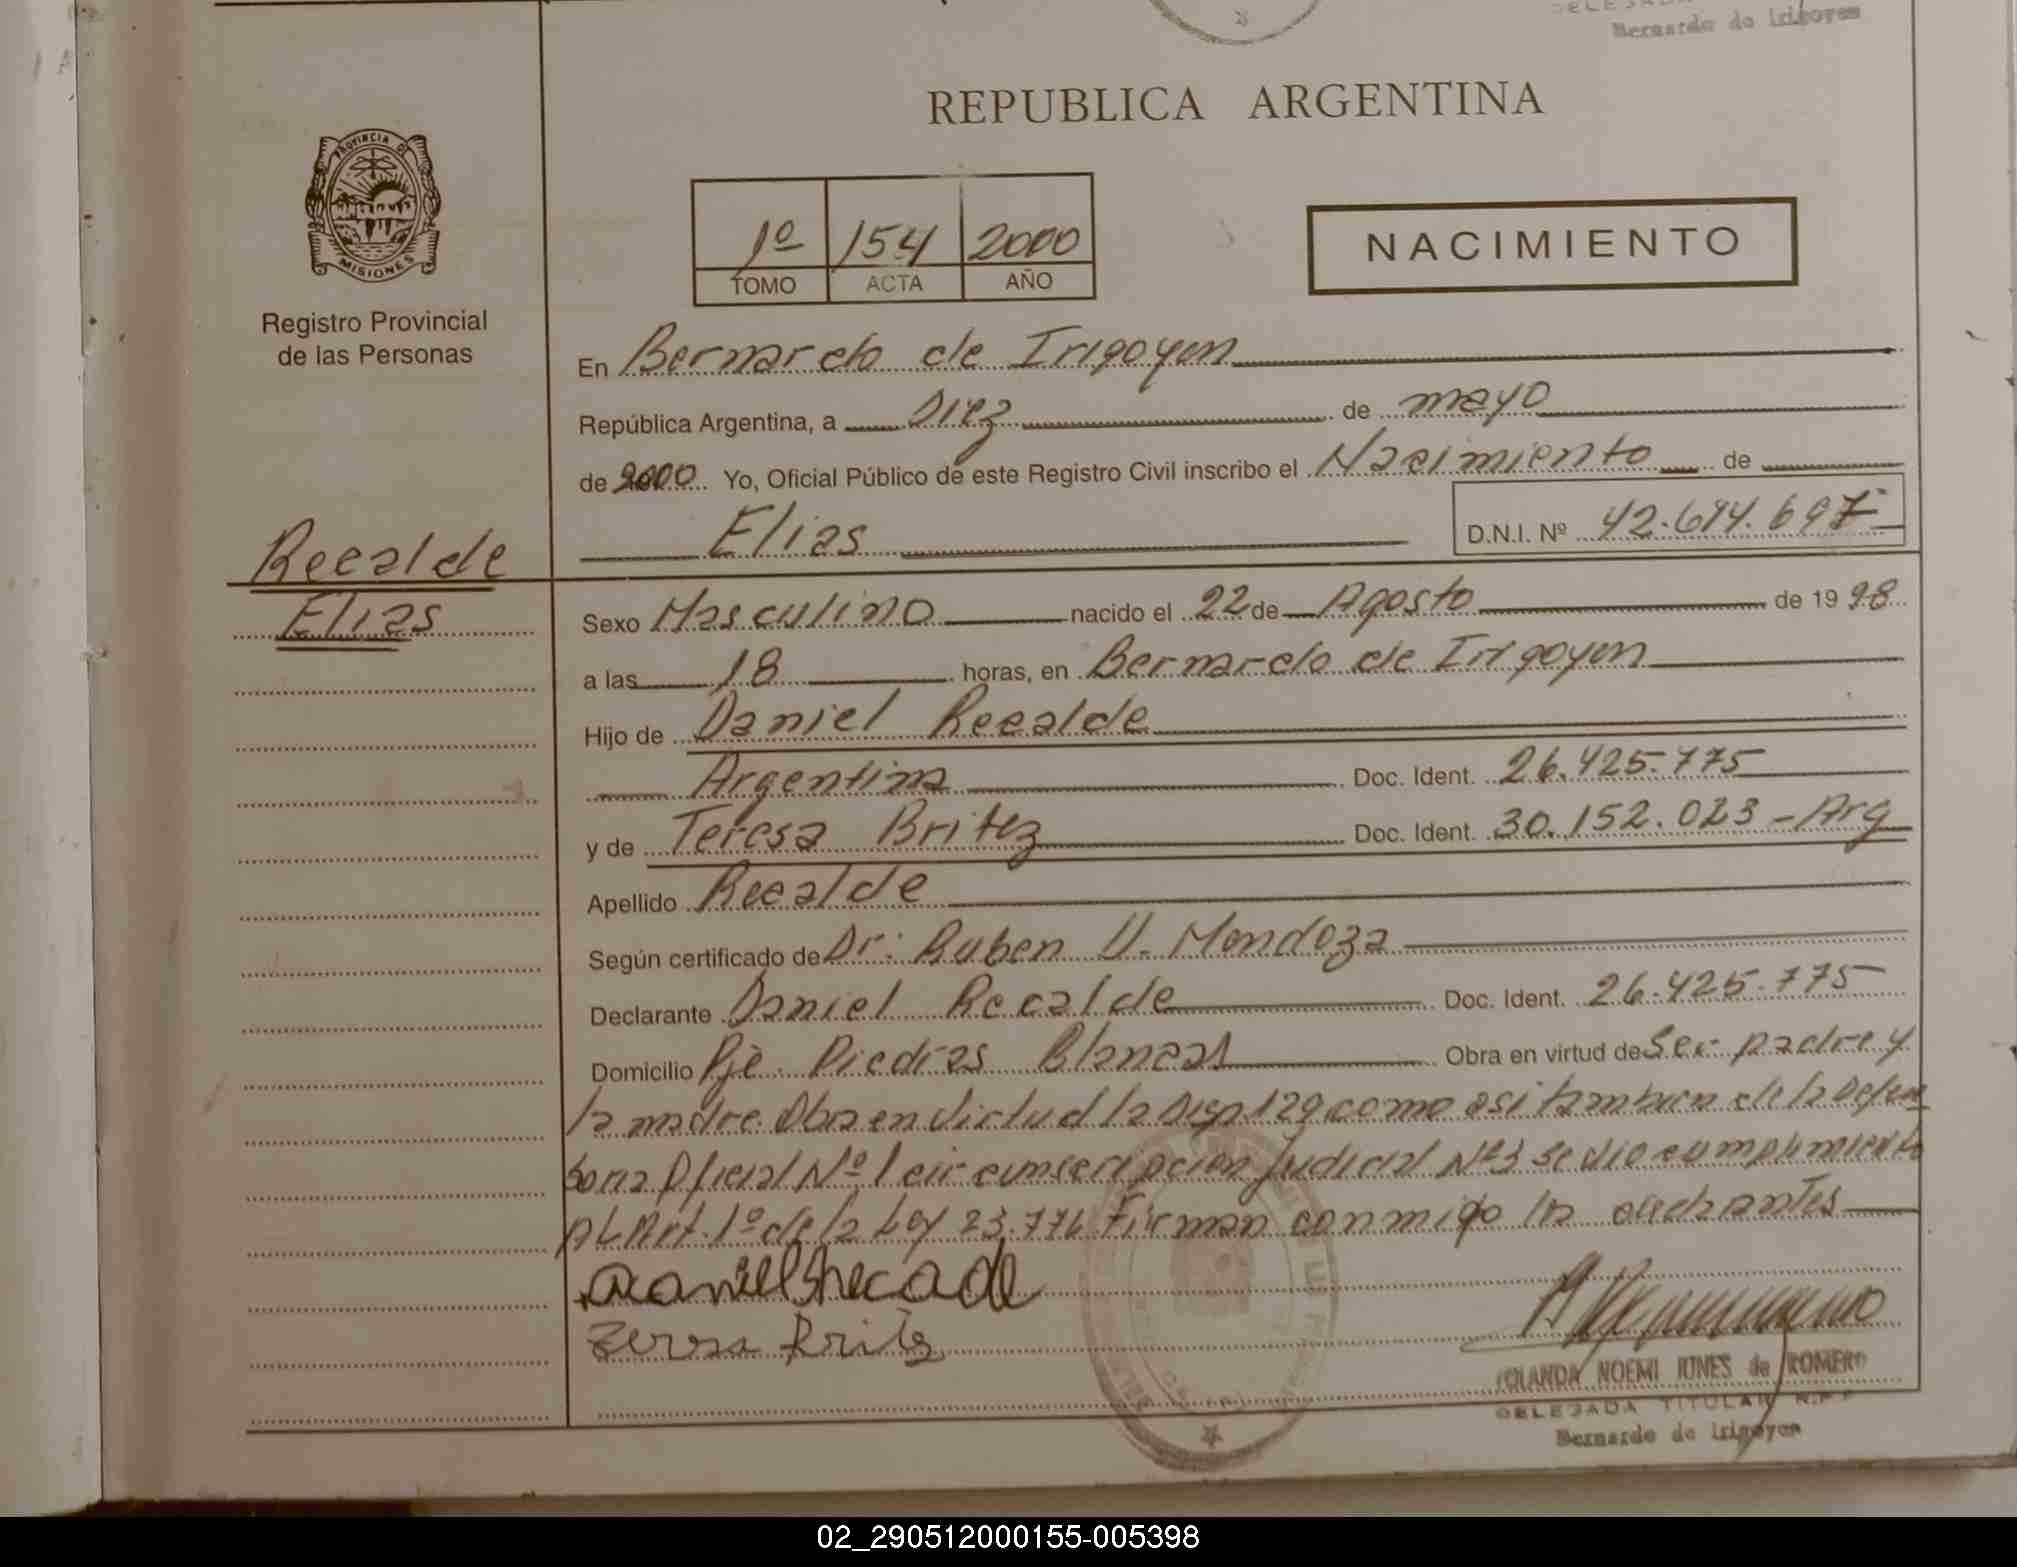 DELEGADA
Bernardo de Irigoyen
REPUBLICA ARGENTINA
PROVINCIA DE
MISIONES
Registro Provincial
de las Personas
1º 154 2000
TOMO ACTA AÑO
NACIMIENTO
En Bernardo de Irigoyen
República Argentina, a Diez de mayo
de 2000 Yo, Oficial Público de este Registro Civil inscribo el Nacimiento de
Elias D.N.I. Nº 42.614.697
Recalde
Elias
Sexo Masculino nacido el 22 de Agosto de 1998
a las 18 horas, en Bernardo de Irigoyen
Hijo de Daniel Recalde
Argentina Doc. Ident. 26.425.775
y de Teresa Britez Doc. Ident. 30.152.023 - Arg
Apellido Recalde
Según certificado de Dr: Ruben V. Mendoza
Declarante Daniel Recalde Doc. Ident. 26.425.775
Domicilio Pje. Piedras Blancas Obra en virtud de Ser padre y
la madre. Obra en virtud la Disp 129 como asi tambien de la Defen
soria Oficial Nº 1 circunscripcion Judicial Nº 3 se dio cumplimiento
Al Art. 1º de la Ley 23.776 Firman conmigo los
Daniel Recalde
Teresa Britez
YOLANDA NOEMI JONES de ROMERO
DELEGADA TITULAR R.P.P
Bernardo de Irigoyen
02_290512000155-005398